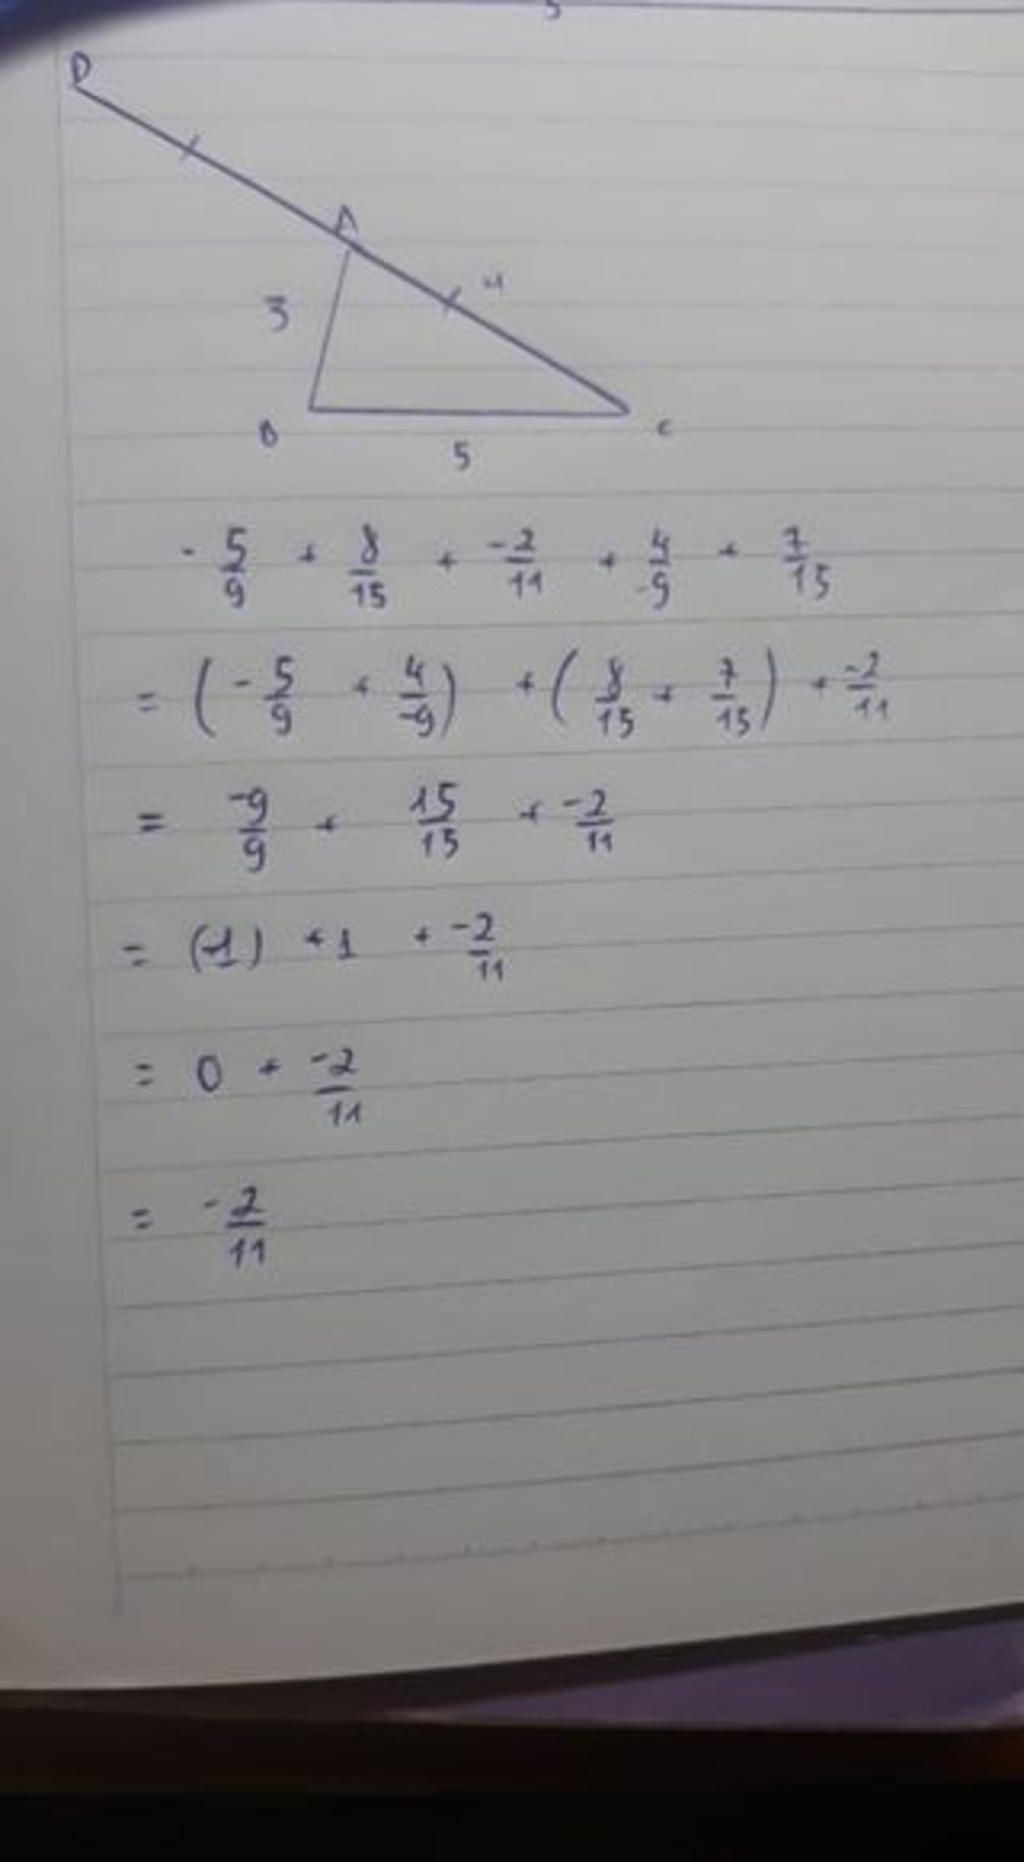 5
D
A
3 4
B C
5
- 5/9 + 8/15 + -2/11 + 4/-9 + 7/15
= (- 5/9 + 4/-9) + (8/15 + 7/15) + -2/11
= -9/9 + 15/15 + -2/11
= (-1) + 1 + -2/11
= 0 + -2/11
= -2/11